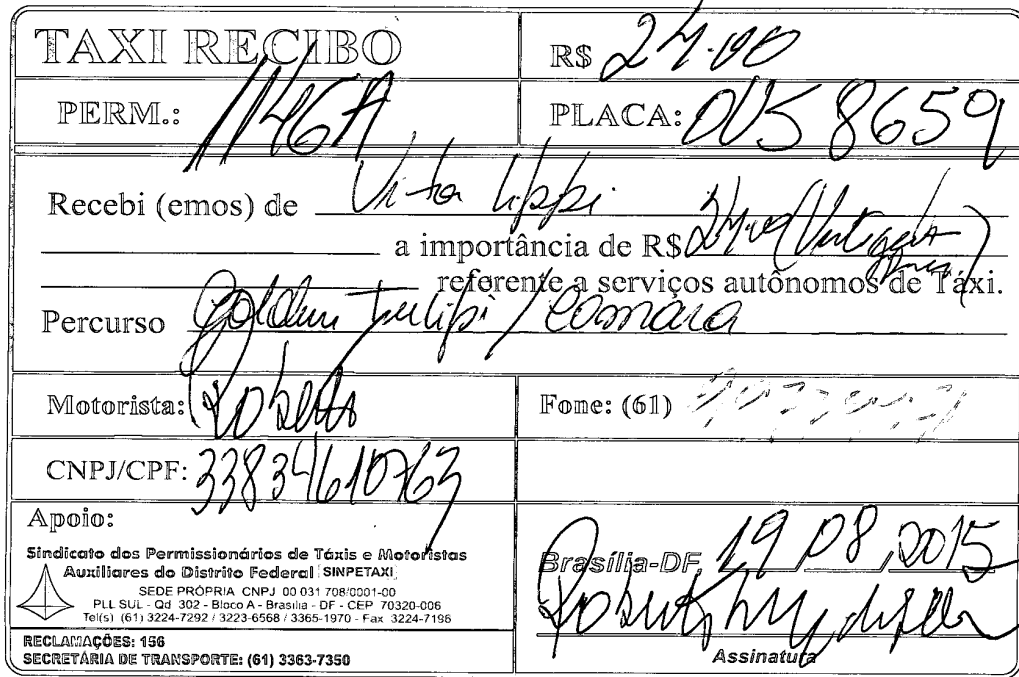 TAXI RECIBO
R$ 24.00
PERM.: 1146A
PLACA: OVS 8659
Recebi (emos) de Vitor Lippi
a importância de R$ 24,00 (Vinte quatro
referente a serviços autônomos de Táxi.
Percurso Golden Tulipi / Camara
Motorista: Roberto
Fone: (61)
CNPJ/CPF: 33834610763
Apoio:
Sindicato dos Permissionários de Táxis e Motoristas
Auxiliares do Distrito Federal SINPETAXI
SEDE PRÓPRIA CNPJ 00 031 708/0001-00
PLL SUL - Qd 302 - Bloco A - Brasília - DF - CEP 70320-006
Tel(s) (61) 3224-7292 / 3223-6568 / 3365-1970 - Fax 3224-7196
RECLAMAÇÕES: 156
SECRETÁRIA DE TRANSPORTE: (61) 3363-7350
Brasília-DF, 19 / 08 / 2015
Assinatura